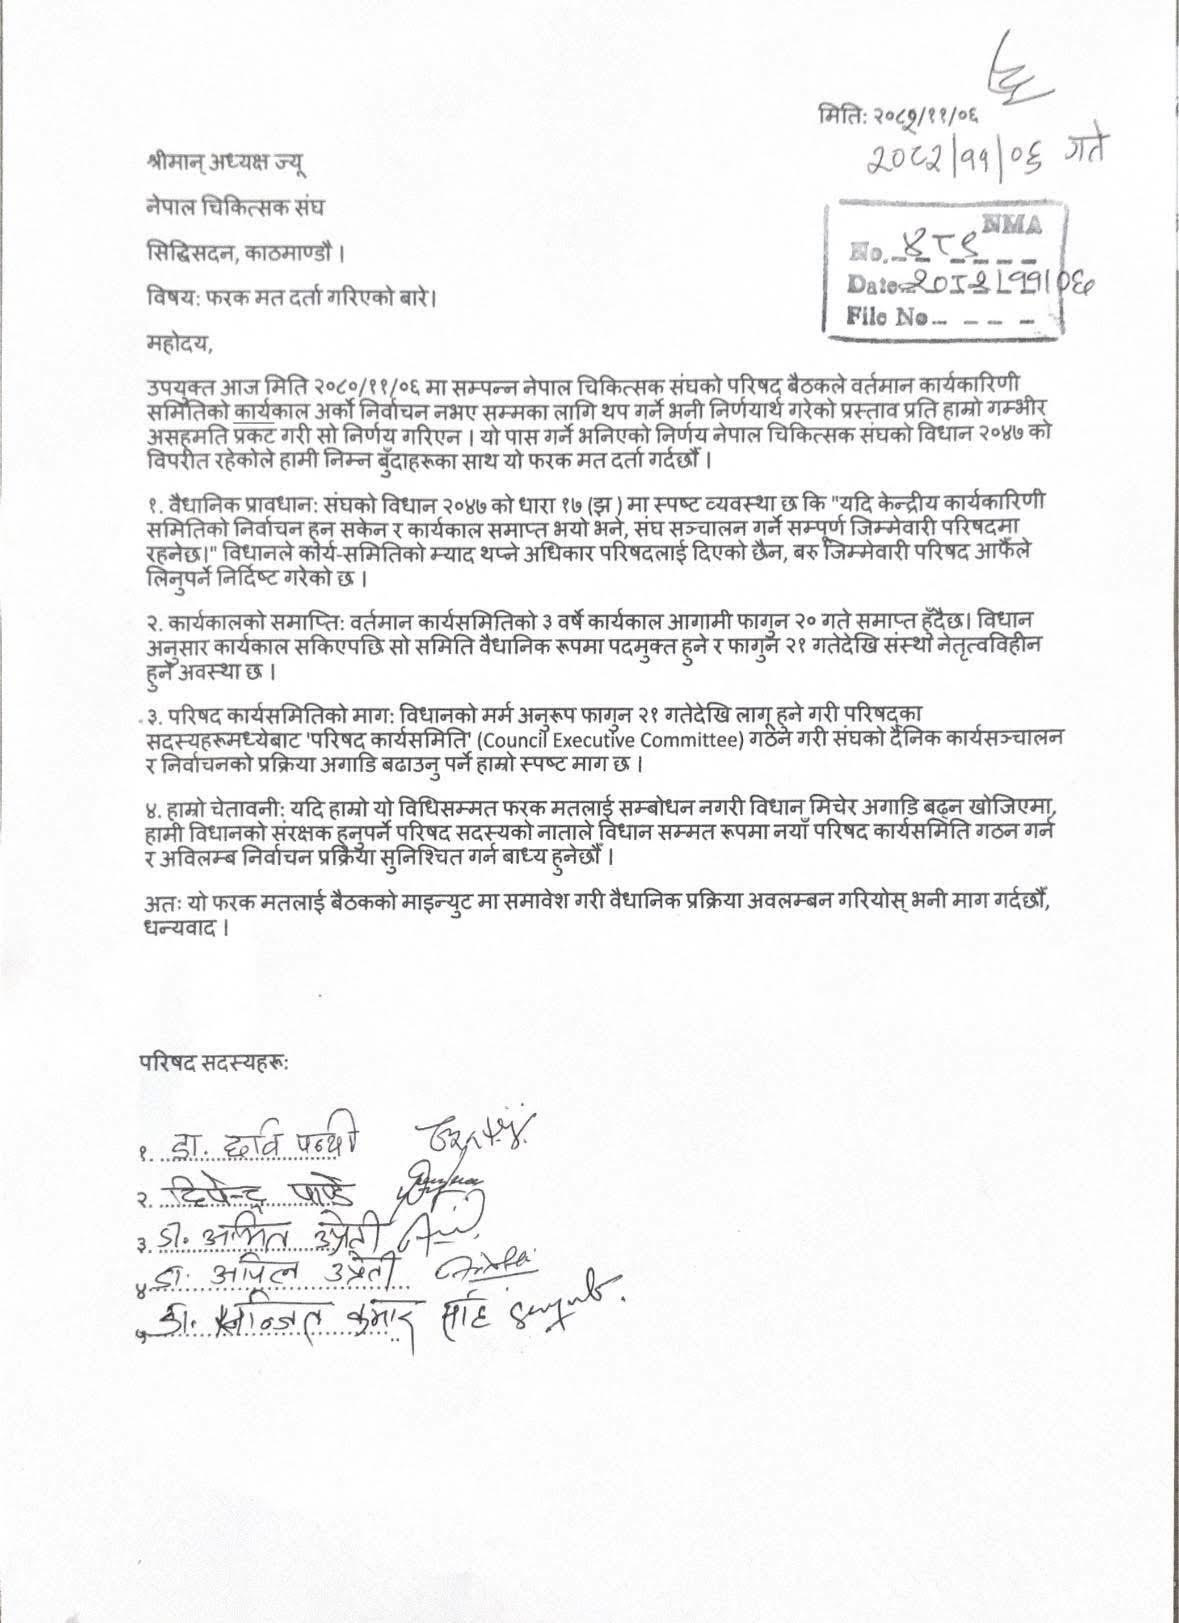 मिति: २०८२/११/०६
२०८२/११/०६ गते
श्रीमान् अध्यक्ष ज्यू
नेपाल चिकित्सक संघ
सिद्धिसदन, काठमाण्डौ ।
विषय: फरक मत दर्ता गरिएको बारे।
NMA
No.
Date २०८२/११/०६
File No
महोदय,
उपयुक्त आज मिति २०८०/११/०६ मा सम्पन्न नेपाल चिकित्सक संघको परिषद बैठकले वर्तमान कार्यकारिणी
समितिको कार्यकाल अर्को निर्वाचन नभए सम्मका लागि थप गर्ने भनी निर्णयार्थ गरेको प्रस्ताव प्रति हाम्रो गम्भीर
असहमति प्रकट गरी सो निर्णय गरिएन । यो पास गर्ने भनिएको निर्णय नेपाल चिकित्सक संघको विधान २०४७ को
विपरीत रहेकोले हामी निम्न बुँदाहरूका साथ यो फरक मत दर्ता गर्दछौं ।
१. वैधानिक प्रावधान: संघको विधान २०४७ को धारा १७ (झ ) मा स्पष्ट व्यवस्था छ कि "यदि केन्द्रीय कार्यकारिणी
समितिको निर्वाचन हुन सकेन र कार्यकाल समाप्त भयो भने, संघ सञ्चालन गर्ने सम्पूर्ण जिम्मेवारी परिषदमा
रहनेछ।" विधानले कार्य-समितिको म्याद थप्ने अधिकार परिषदलाई दिएको छैन, बरु जिम्मेवारी परिषद आफैँले
लिनुपर्ने निर्दिष्ट गरेको छ ।
२. कार्यकालको समाप्ति: वर्तमान कार्यसमितिको ३ वर्षे कार्यकाल आगामी फागुन २० गते समाप्त हुँदैछ। विधान
अनुसार कार्यकाल सकिएपछि सो समिति वैधानिक रूपमा पदमुक्त हुने र फागुन २१ गतेदेखि संस्था नेतृत्वविहीन
हुने अवस्था छ ।
३. परिषद कार्यसमितिको माग: विधानको मर्म अनुरूप फागुन २१ गतेदेखि लागू हुने गरी परिषद्का
सदस्यहरूमध्येबाट 'परिषद कार्यसमिति' (Council Executive Committee) गठन गरी संघको दैनिक कार्यसञ्चालन
र निर्वाचनको प्रक्रिया अगाडि बढाउनु पर्ने हाम्रो स्पष्ट माग छ ।
४. हाम्रो चेतावनी: यदि हाम्रो यो विधिसम्मत फरक मतलाई सम्बोधन नगरी विधान मिचेर अगाडि बढ्न खोजिएमा,
हामी विधानको संरक्षक हुनुपर्ने परिषद सदस्यको नाताले विधान सम्मत रूपमा नयाँ परिषद कार्यसमिति गठन गर्न
र अविलम्ब निर्वाचन प्रक्रिया सुनिश्चित गर्न बाध्य हुनेछौँ ।
अतः यो फरक मतलाई बैठकको माइन्युट मा समावेश गरी वैधानिक प्रक्रिया अवलम्बन गरियोस् भनी माग गर्दछौँ,
धन्यवाद ।
परिषद सदस्यहरू:
१. डा. छवि पन्थी
२. दिपेन्द्र पाण्डे
३. डा. अमित उप्रेती
४. डा. अर्पित उप्रेती
५. डा. कुमार साह